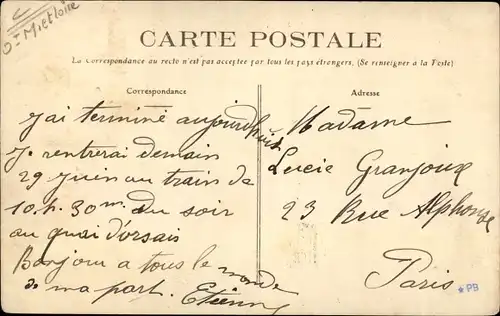 CARTE POSTALE
La Correspondance au recto n'est pas acceptée par tous les pays étrangers. (Se renseigner à la Poste)
Correspondance
j'ai terminé aujourd'huit
Je rentrerai demain
29 Juin au train de
10.h. 30m. du soir
au quai d'orsais
Bonjour a tous le monde
de ma part. Etienne
Adresse
Madame
Lucie Granjoux
23 Rue Alphonse
Paris
PB